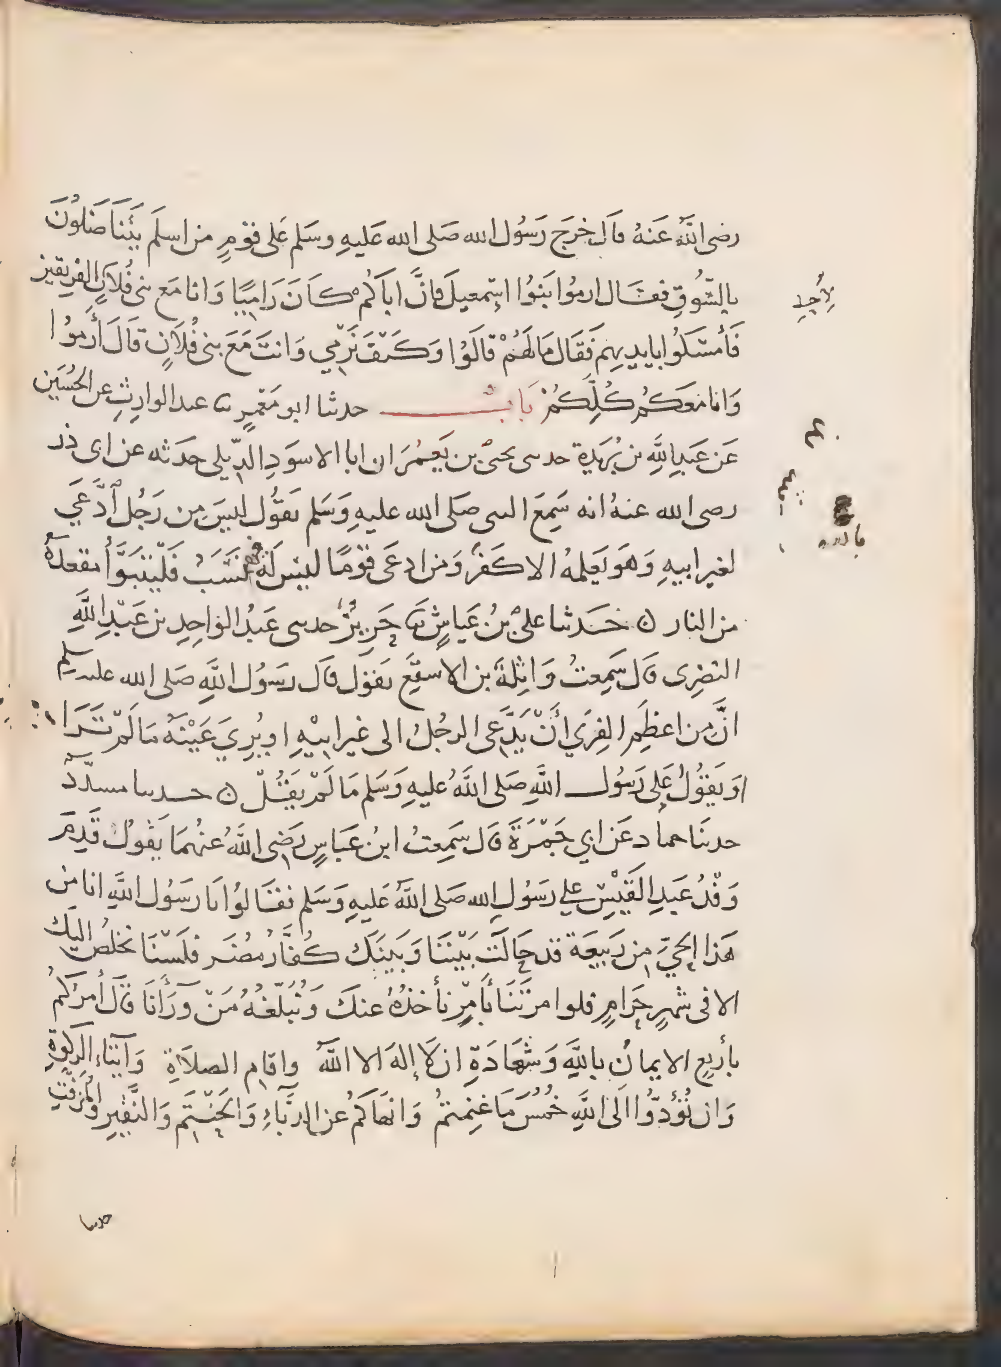 رضى اللَّه عَنهُ قَالَ خَرَجَ رَسُول الله صَلى الله عَليهِ وسَلم عَلى قَومٍ من اسلَمَ يَتَنَاضَلوُنَ
بالسُّوقِ فقال ارموُا بَنوُا اسمعيل فانَّ اباكُم كَانَ رَامِيًا وَانا مَع بنى فُلَانٍ الفريقين
لِأَحَدِ
فَأمسَكوُا بايديهم فَقَال مَا لَهُمْ قالَوُا وَكَيْفَ نَرْمي وَانتَ مَعَ بنى فُلَانٍ قَالَ أَرْموُا
وَانا مَعَكُم كُلِّكُمْ بَابٌ حدثنا ابو مَعْمَرٍ ثنا عبد الوارِثِ عن الحُسَين
عَن عَبدِ اللَّهِ بن بُرَيدة حدثنى يحيَى بن يَعْمَرَ ان ابا الاسوَدِ الدِّيلى حَدثه عن ابى ذر
رضى الله عنهُ انه سَمِعَ النبى صَلى الله عليهِ وَسَلم يَقُول ليسَ مِن رَجُل ادَّعَى
لغير ابيهِ وَهوَ يَعلمهُ الا كَفَرَ وَمن ادعَى قَومًا ليسَ لَهُ فيهم نَسَبٌ فَلْيتبَوَّأ مقعدَهُ
من النار ن حَدثنا علىُّ بنُ عَيَاشٍ ثنا حَرِيزٌ حدثنى عَبدُ الوَاحِدِ بن عَبْدِ اللَّهِ
النصْرِى قَال سَمِعتُ وَاثِلةَ بن الاسقَعِ يَقوُل قَالَ رَسُول اللَّهِ صَلى الله عليه وسلم
انَّ مِن اعظَمِ الفِرَى أنْ يَدَّعى الرجُل الى غير ابيْهِ او يُرِيَ عَيْنَهُ مَا لَمْ تَرَا
اوَ يَقوُلُ عَلى رَسُول اللَّهِ صَلى اللَّهُ عليهِ وَسَلم مَا لَمْ يَقُلْ ن حدثنا مسدّدٌ
حدثنَا حماد عَن ابي جَمْرَةَ قَال سَمِعتُ ابنَ عَباسٍ رَضى اللَّهُ عنهُمَا يَقُولُ قَدِمَ
وَفْدُ عَبدِ القَيْسِ على رَسُولِ الله صَلى اللَّهُ عَليهِ وَسَلم فقَالوُا يَا رَسُول اللَّهِ انا من
هَذا الحَيِّ من رَبيعَة قد حَالَت بَيْنَنَا وَبَينَك كُفَّارُ مضَر فلَسْنَا نخلُصُ اليَك
الا فى شهرٍ حَرامٍ فلوا مرتَنَا بأمْرٍ نأخذُهُ عنكَ وَنُبَلِّغهُ مَنْ وَرَآنَا قَالَ أمُركُمْ
بأربعٍ الايمانُ باللَّهِ وَشهَادَةِ ان لَا إلهَ الا اللَّهُ واقام الصلَاةِ وَايتاءِ الزكوةِ
وَان تؤُدّوُا الَى اللَّهِ خُمُسَ مَا غَنِمتمُ وَانهَاكُم عن الدُّبَّاءِ وَالحَنْتَم وَالنَّقِيرِ والمُزَفَّتِ
حدثنا